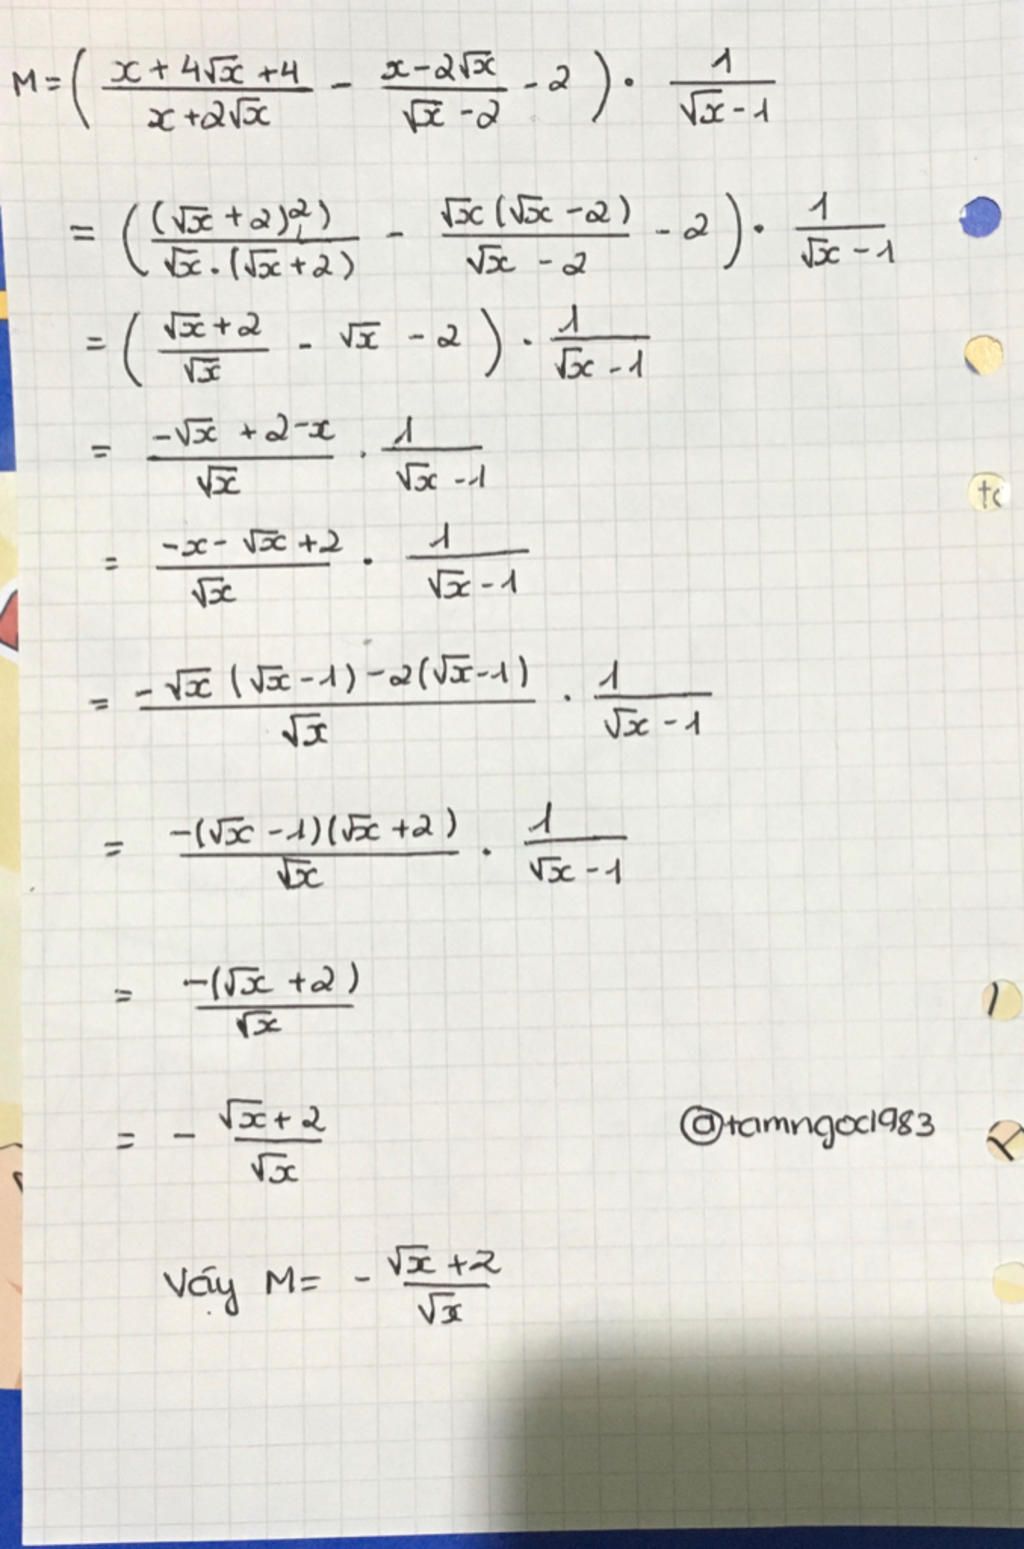 M = ( (x + 4√x + 4)/(x + 2√x) - (x - 2√x)/(√x - 2) - 2 ) . 1/(√x - 1)
= ( (√x + 2)²)/(√x . (√x + 2)) - √x (√x - 2)/(√x - 2) - 2 ) . 1/(√x - 1)
= ( (√x + 2)/√x - √x - 2 ) . 1/(√x - 1)
= (-√x + 2 - x)/√x . 1/(√x - 1)
= (-x - √x + 2)/√x . 1/(√x - 1)
= (-√x (√x - 1) - 2(√x - 1))/√x . 1/(√x - 1)
= -(√x - 1)(√x + 2)/√x . 1/(√x - 1)
= -(√x + 2)/√x
= - (√x + 2)/√x
@tamngoc1983
Vậy M = - (√x + 2)/√x